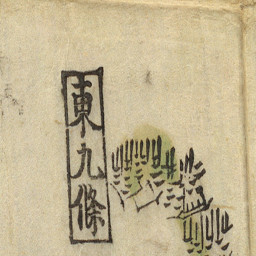 東九條